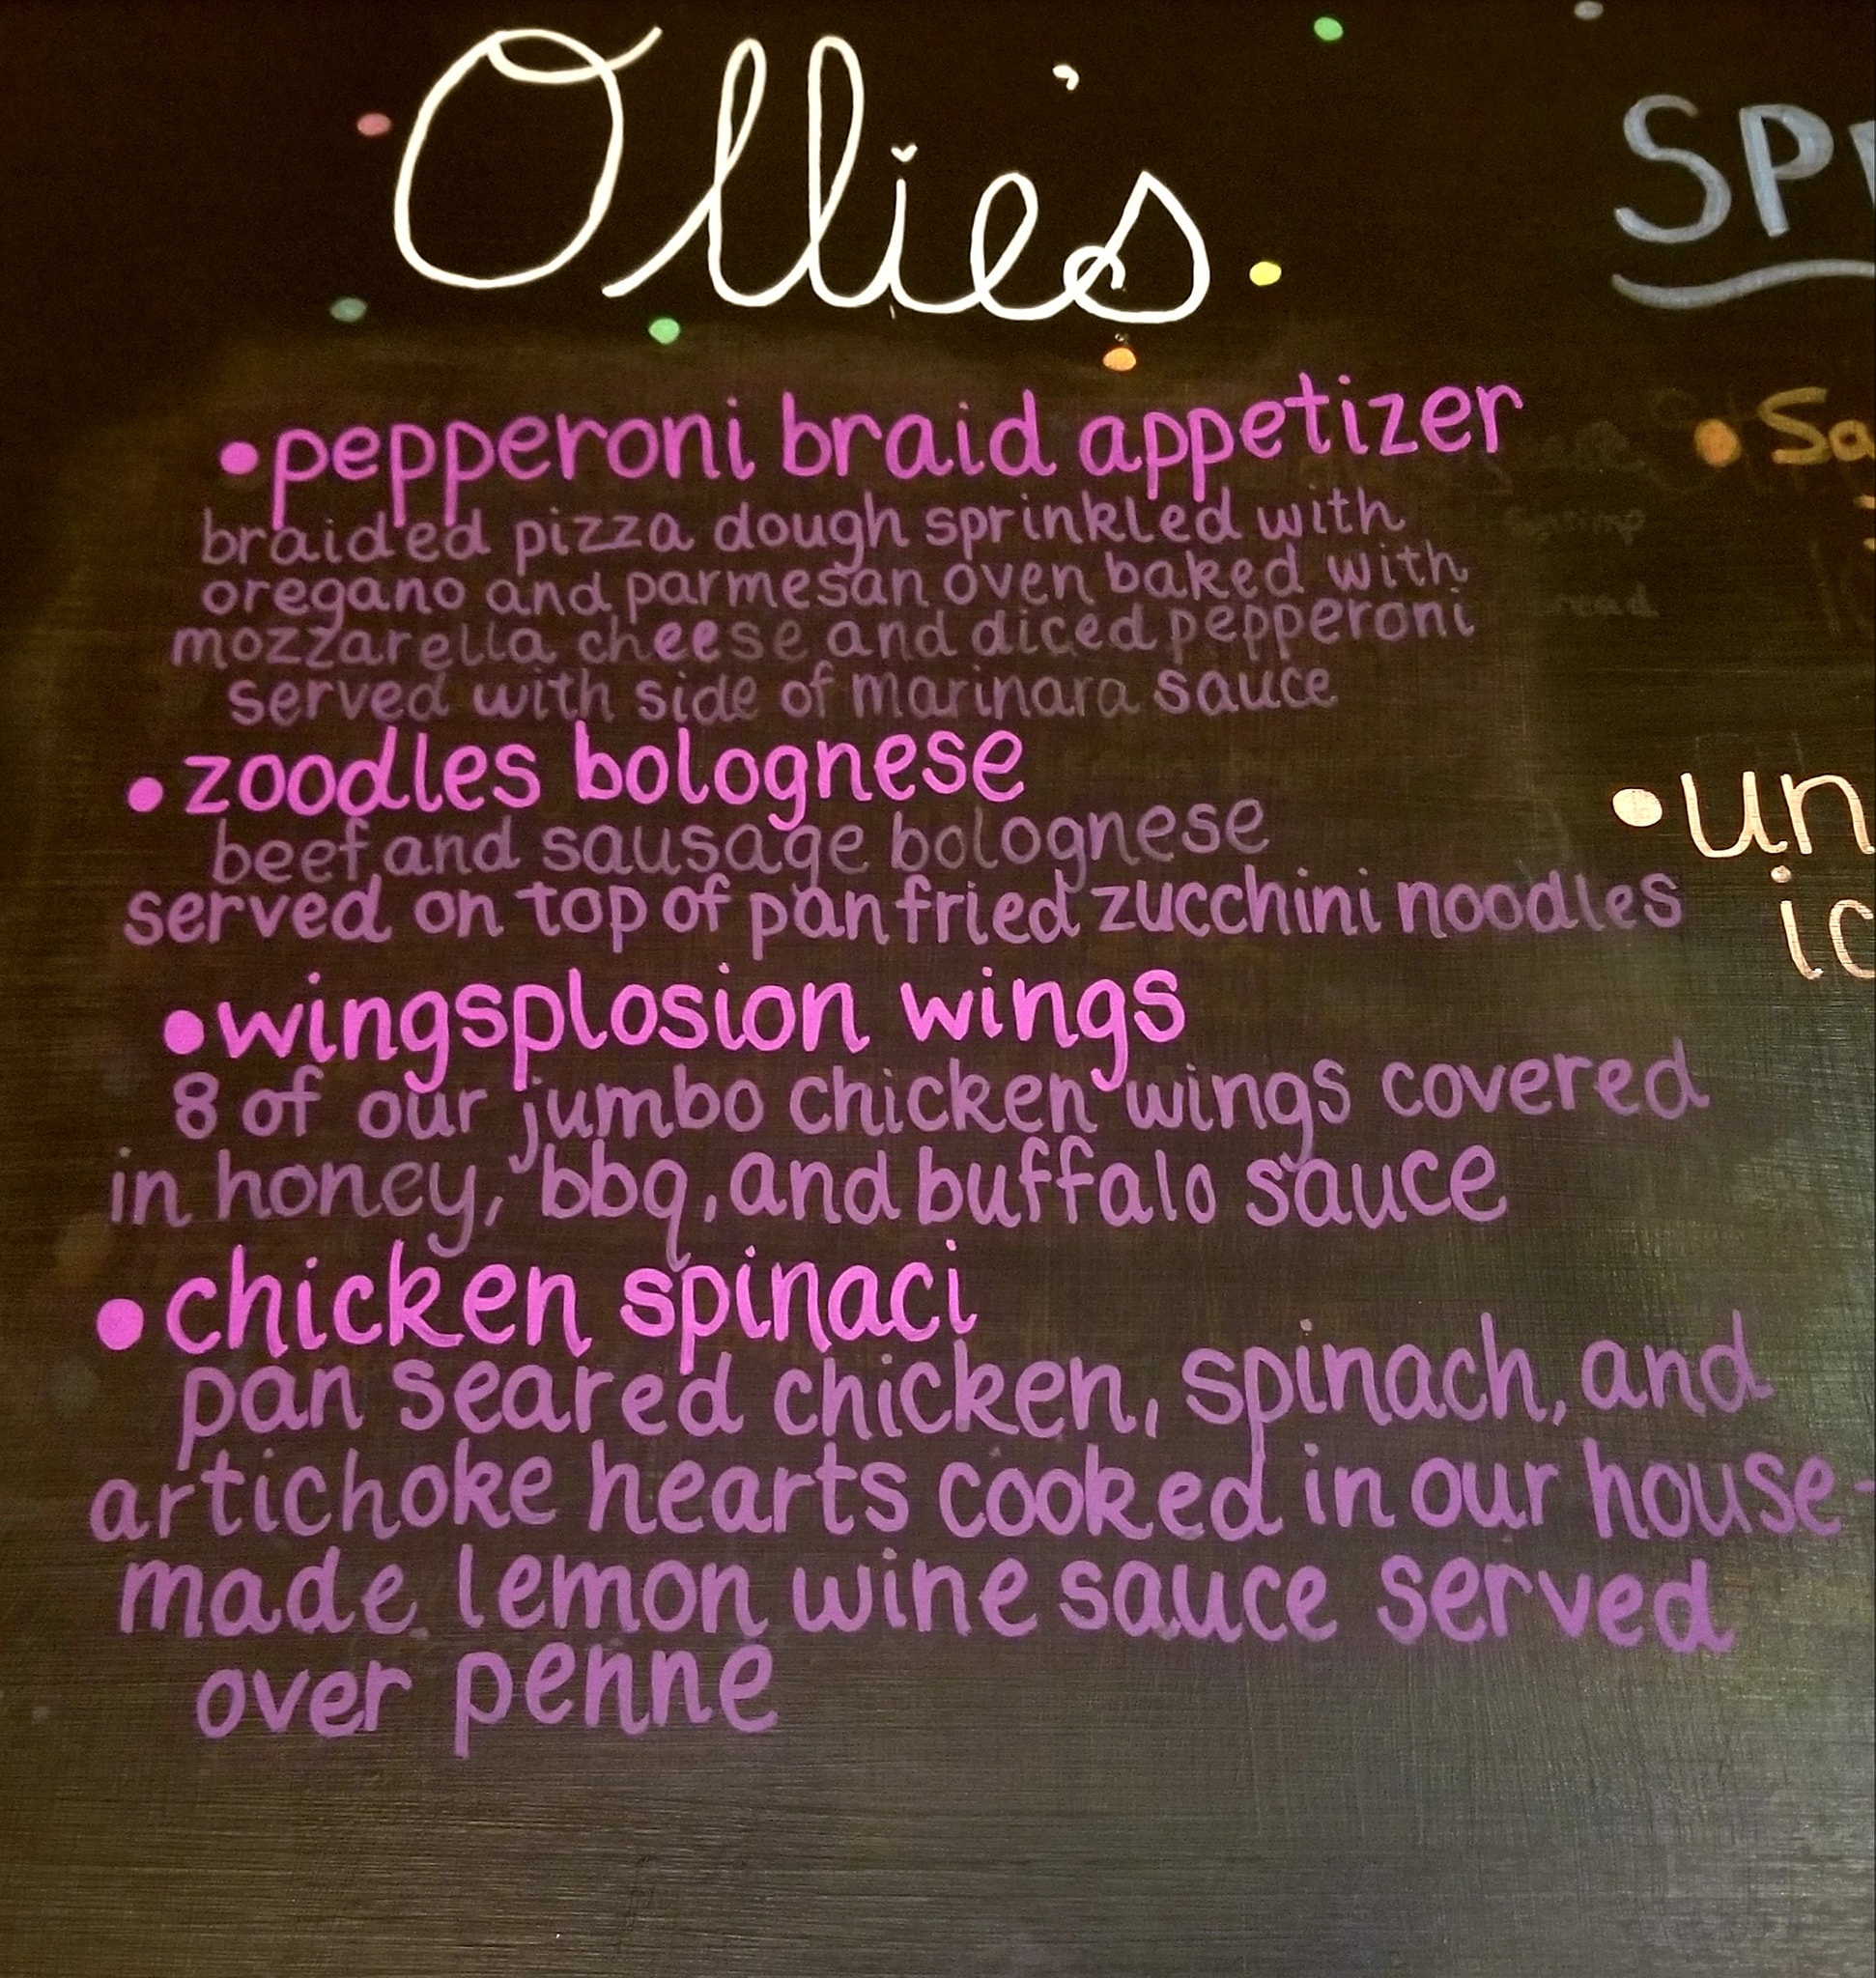 Ollie's
• pepperoni braid appetizer
braided pizza dough sprinkled with
oregano and parmesan oven baked with
mozzarella cheese and diced pepperoni
served with side of marinara sauce
• zoodles bolognese
beef and sausage bolognese
served on top of pan fried zucchini noodles
• wingsplosion wings
8 of our jumbo chicken wings covered
in honey, bbq, and buffalo sauce
• chicken spinaci
pan seared chicken, spinach, and
artichoke hearts cooked in our house-
made lemon wine sauce served
over penne